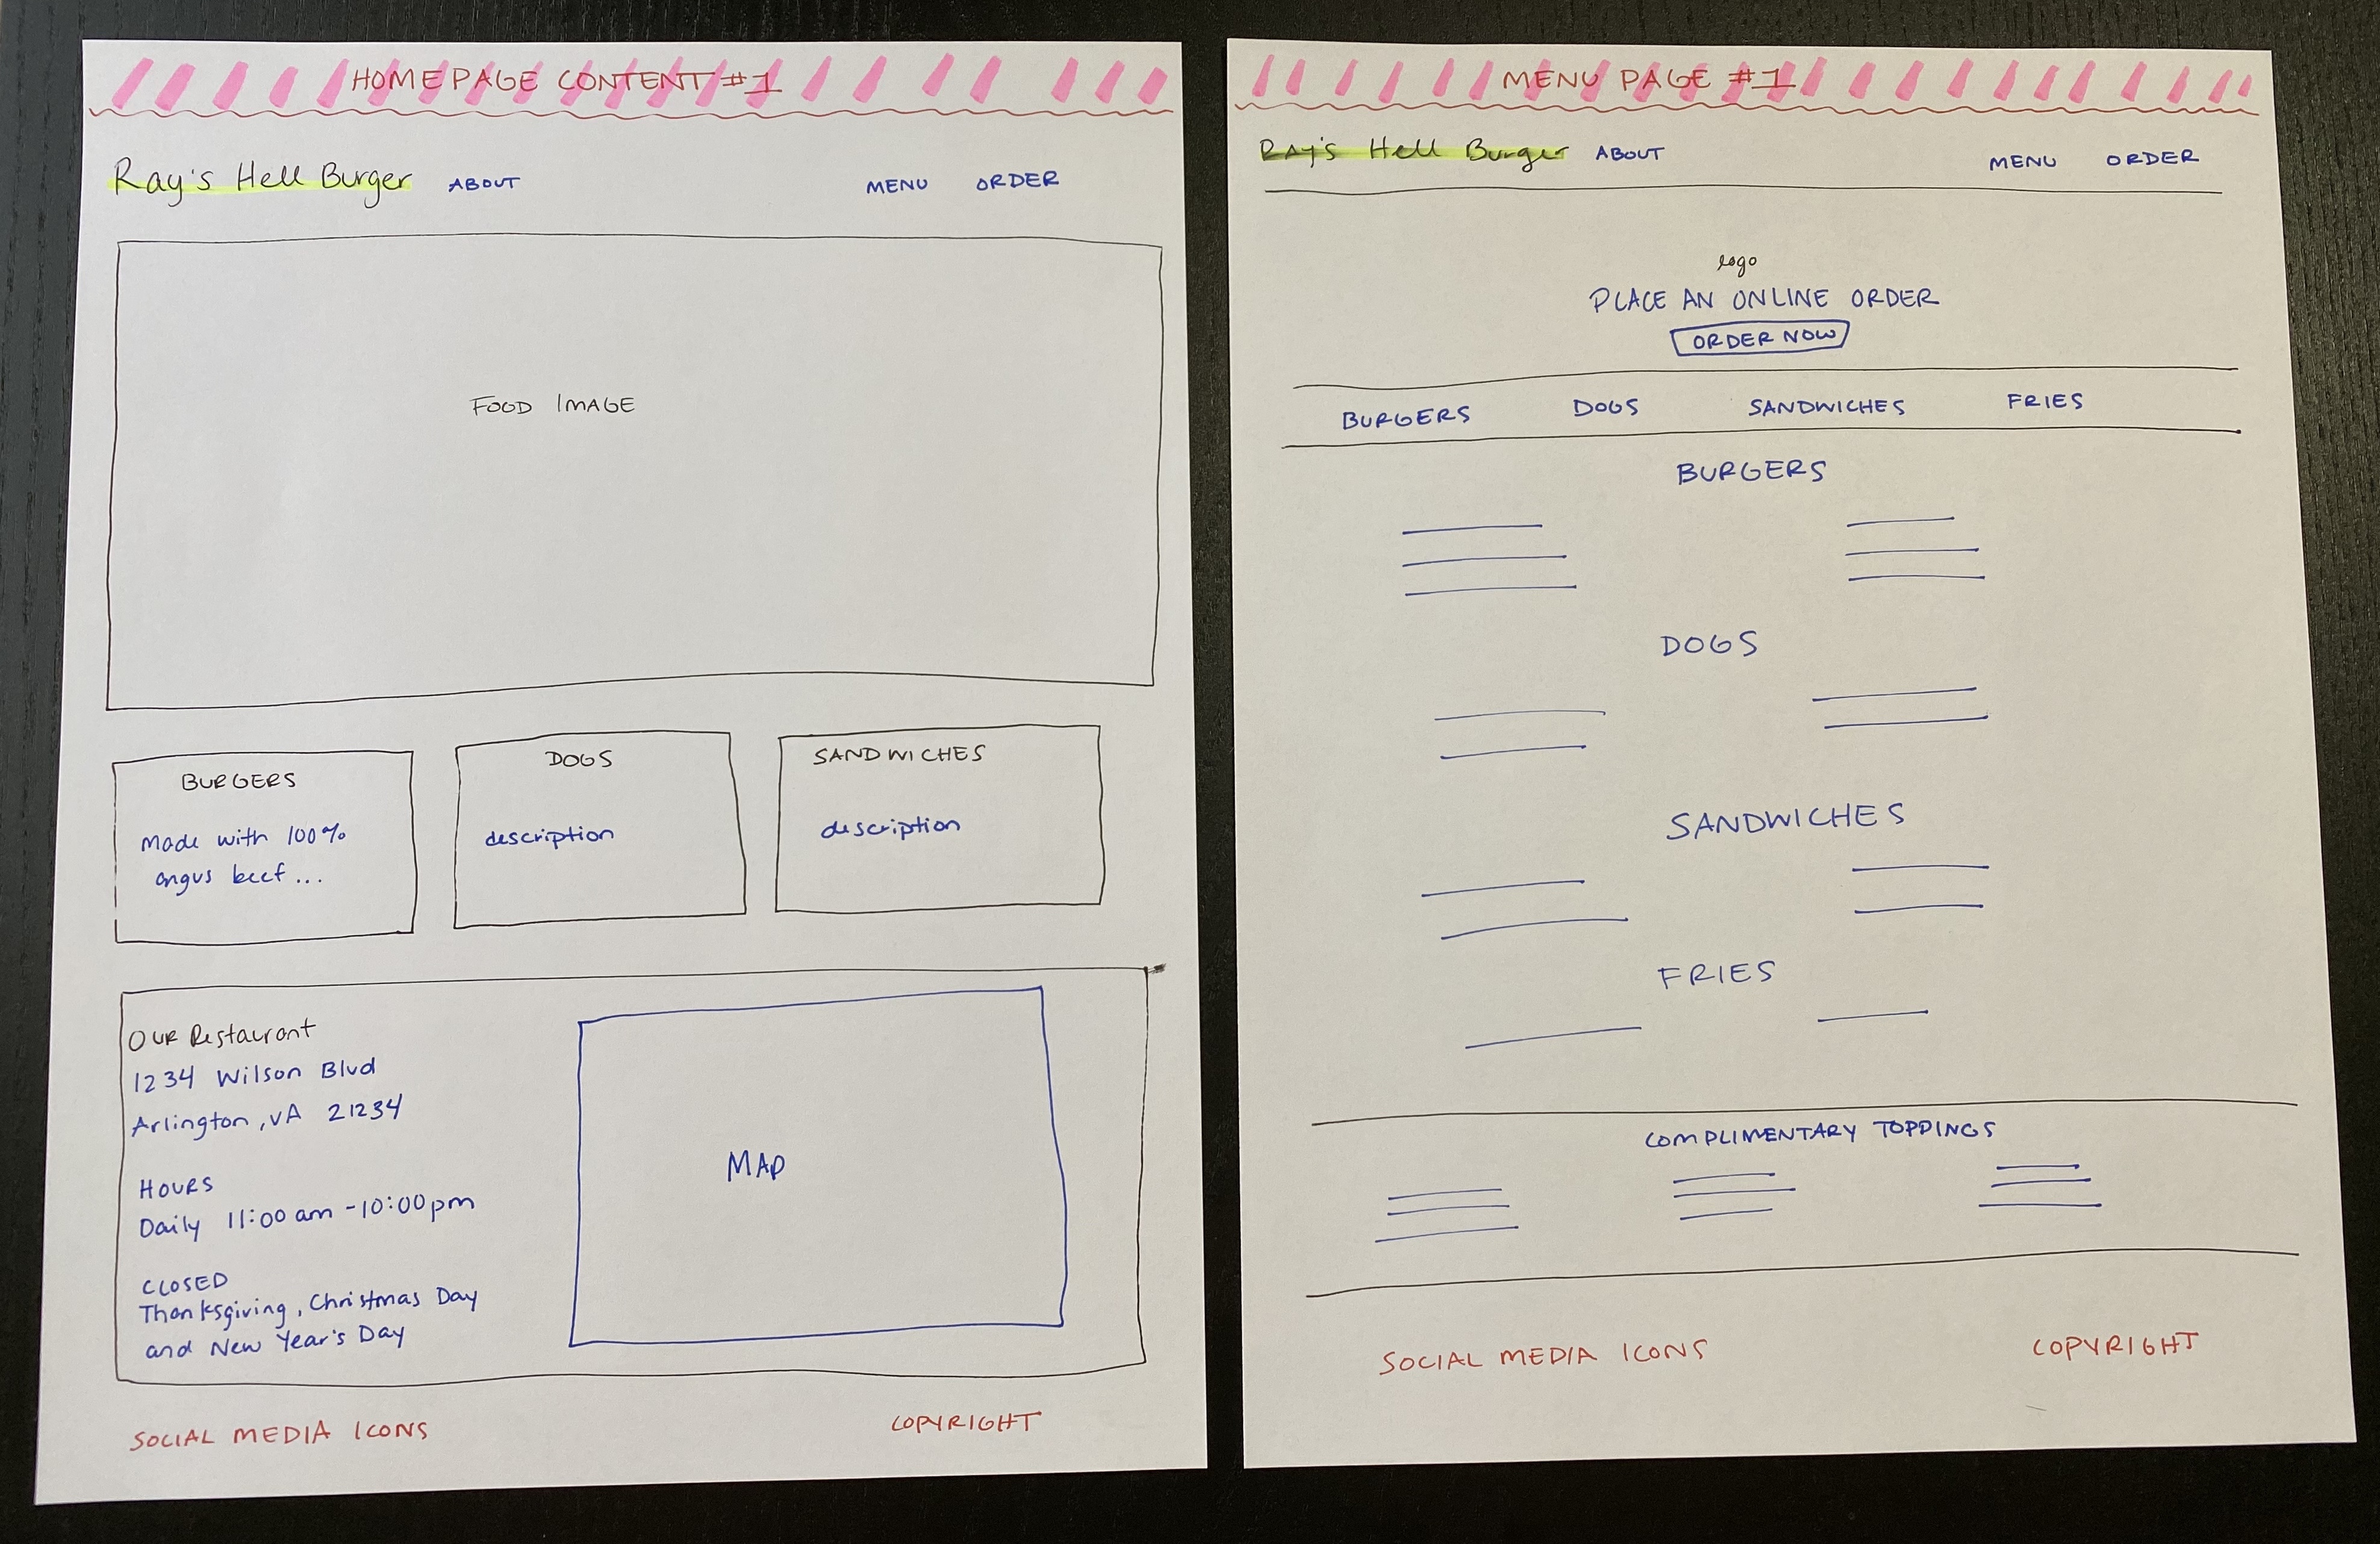 HOMEPAGE CONTENT #1
Ray's Hell Burger ABOUT MENU ORDER
FOOD IMAGE
BURGERS
Made with 100%
angus beef...
DOGS
description
SANDWICHES
description
OUR Restaurant
1234 Wilson Blvd
Arlington, VA 21234
HOURS
Daily 11:00 am - 10:00 pm
CLOSED
Thanksgiving, Christmas Day
and New Year's Day
MAP
SOCIAL MEDIA ICONS COPYRIGHT
MENU PAGE #1
Ray's Hell Burger ABOUT MENU ORDER
logo
PLACE AN ONLINE ORDER
ORDER NOW
BURGERS DOGS SANDWICHES FRIES
BURGERS
DOGS
SANDWICHES
FRIES
COMPLIMENTARY TOPPINGS
SOCIAL MEDIA ICONS COPYRIGHT